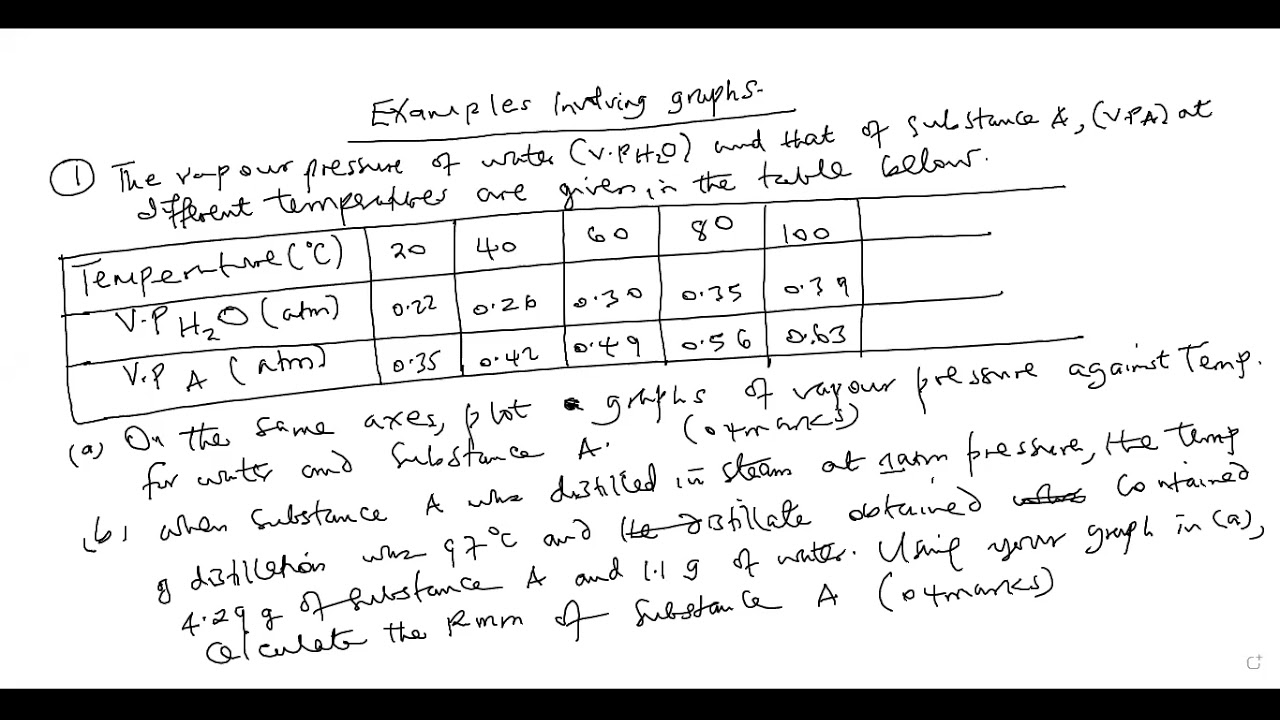 Examples involving graphs.
① The vapour pressure of water (V.PH₂O) and that of substance A, (V.PA) at
different temperatures are given in the table below.
Temperature (°C) 20 40 60 80 100
V.P H₂O (atm) 0.22 0.26 0.30 0.35 0.39
V.P A (atm) 0.35 0.42 0.49 0.56 0.63
(a) On the same axes, plot graphs of vapour pressure against Temp.
for water and substance A. (04marks)
(b) When substance A was distilled in steam at 1atm pressure, the temp
of distillation was 97°C and distillate obtained contained
4.29 g of substance A and 1.1 g of water. Using your graph in (a),
Calculate the Rmm of substance A (04marks)